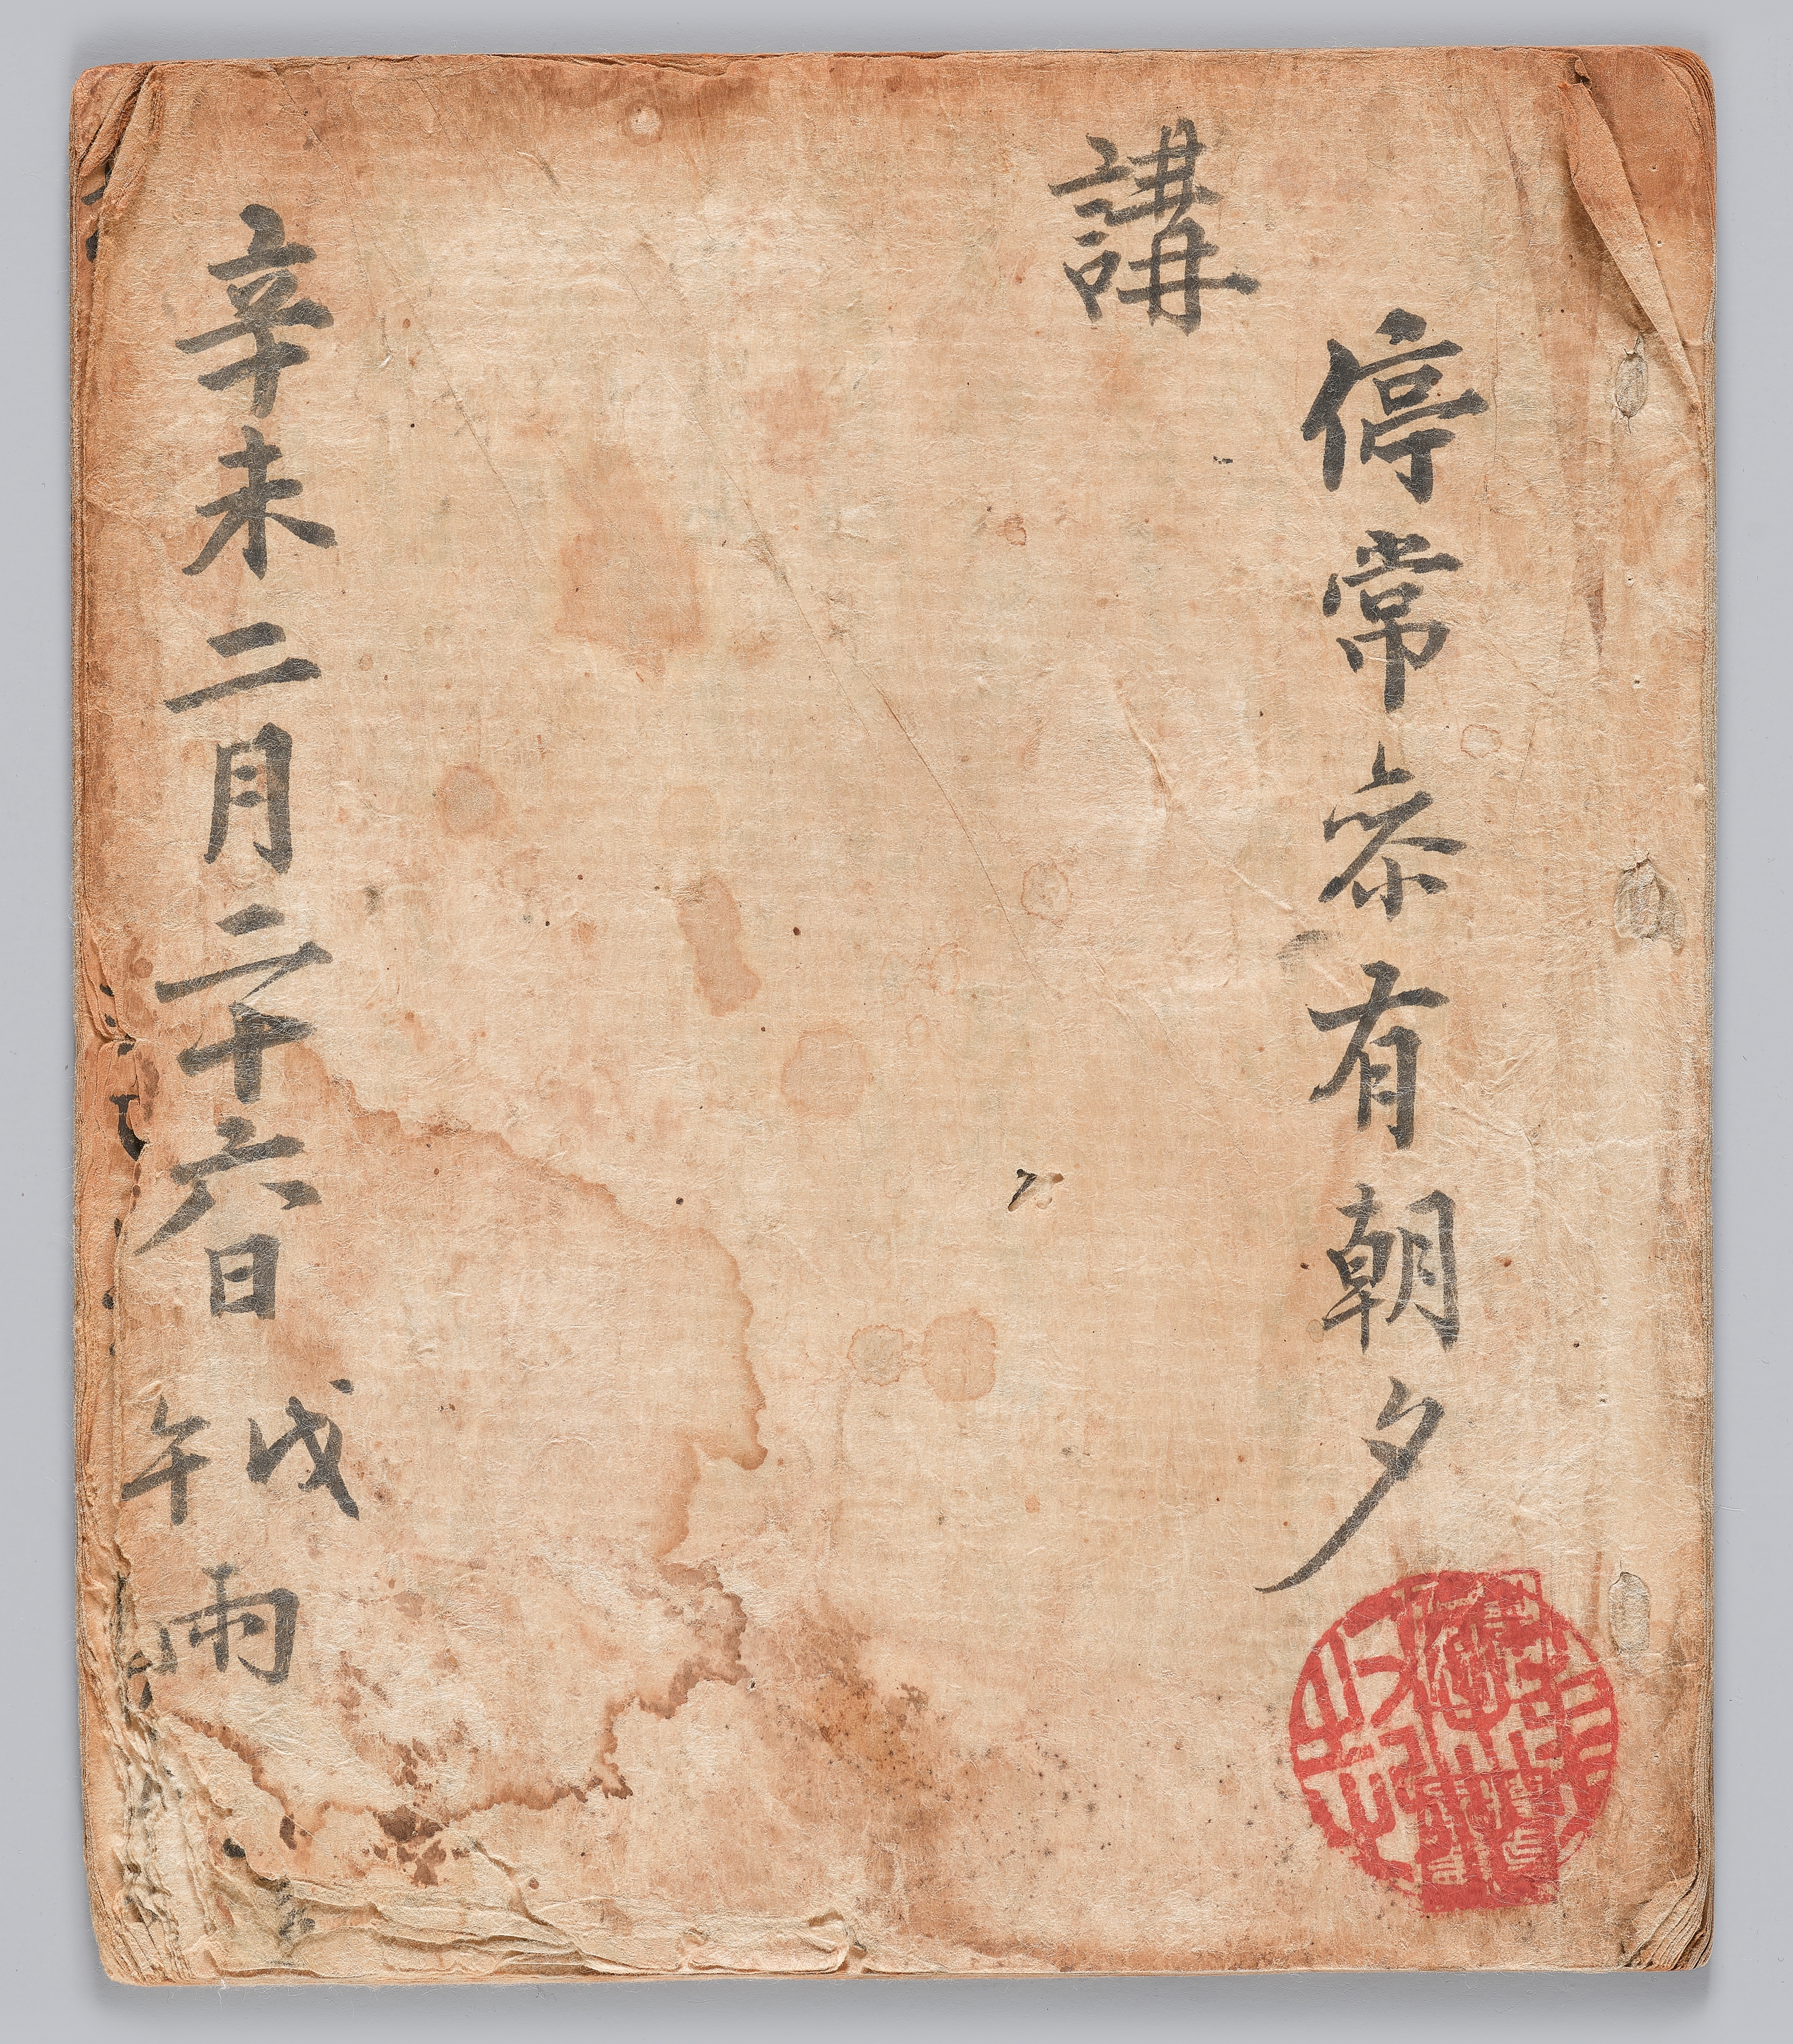 停常叅有朝夕
講
辛未二月二十六日戊午雨